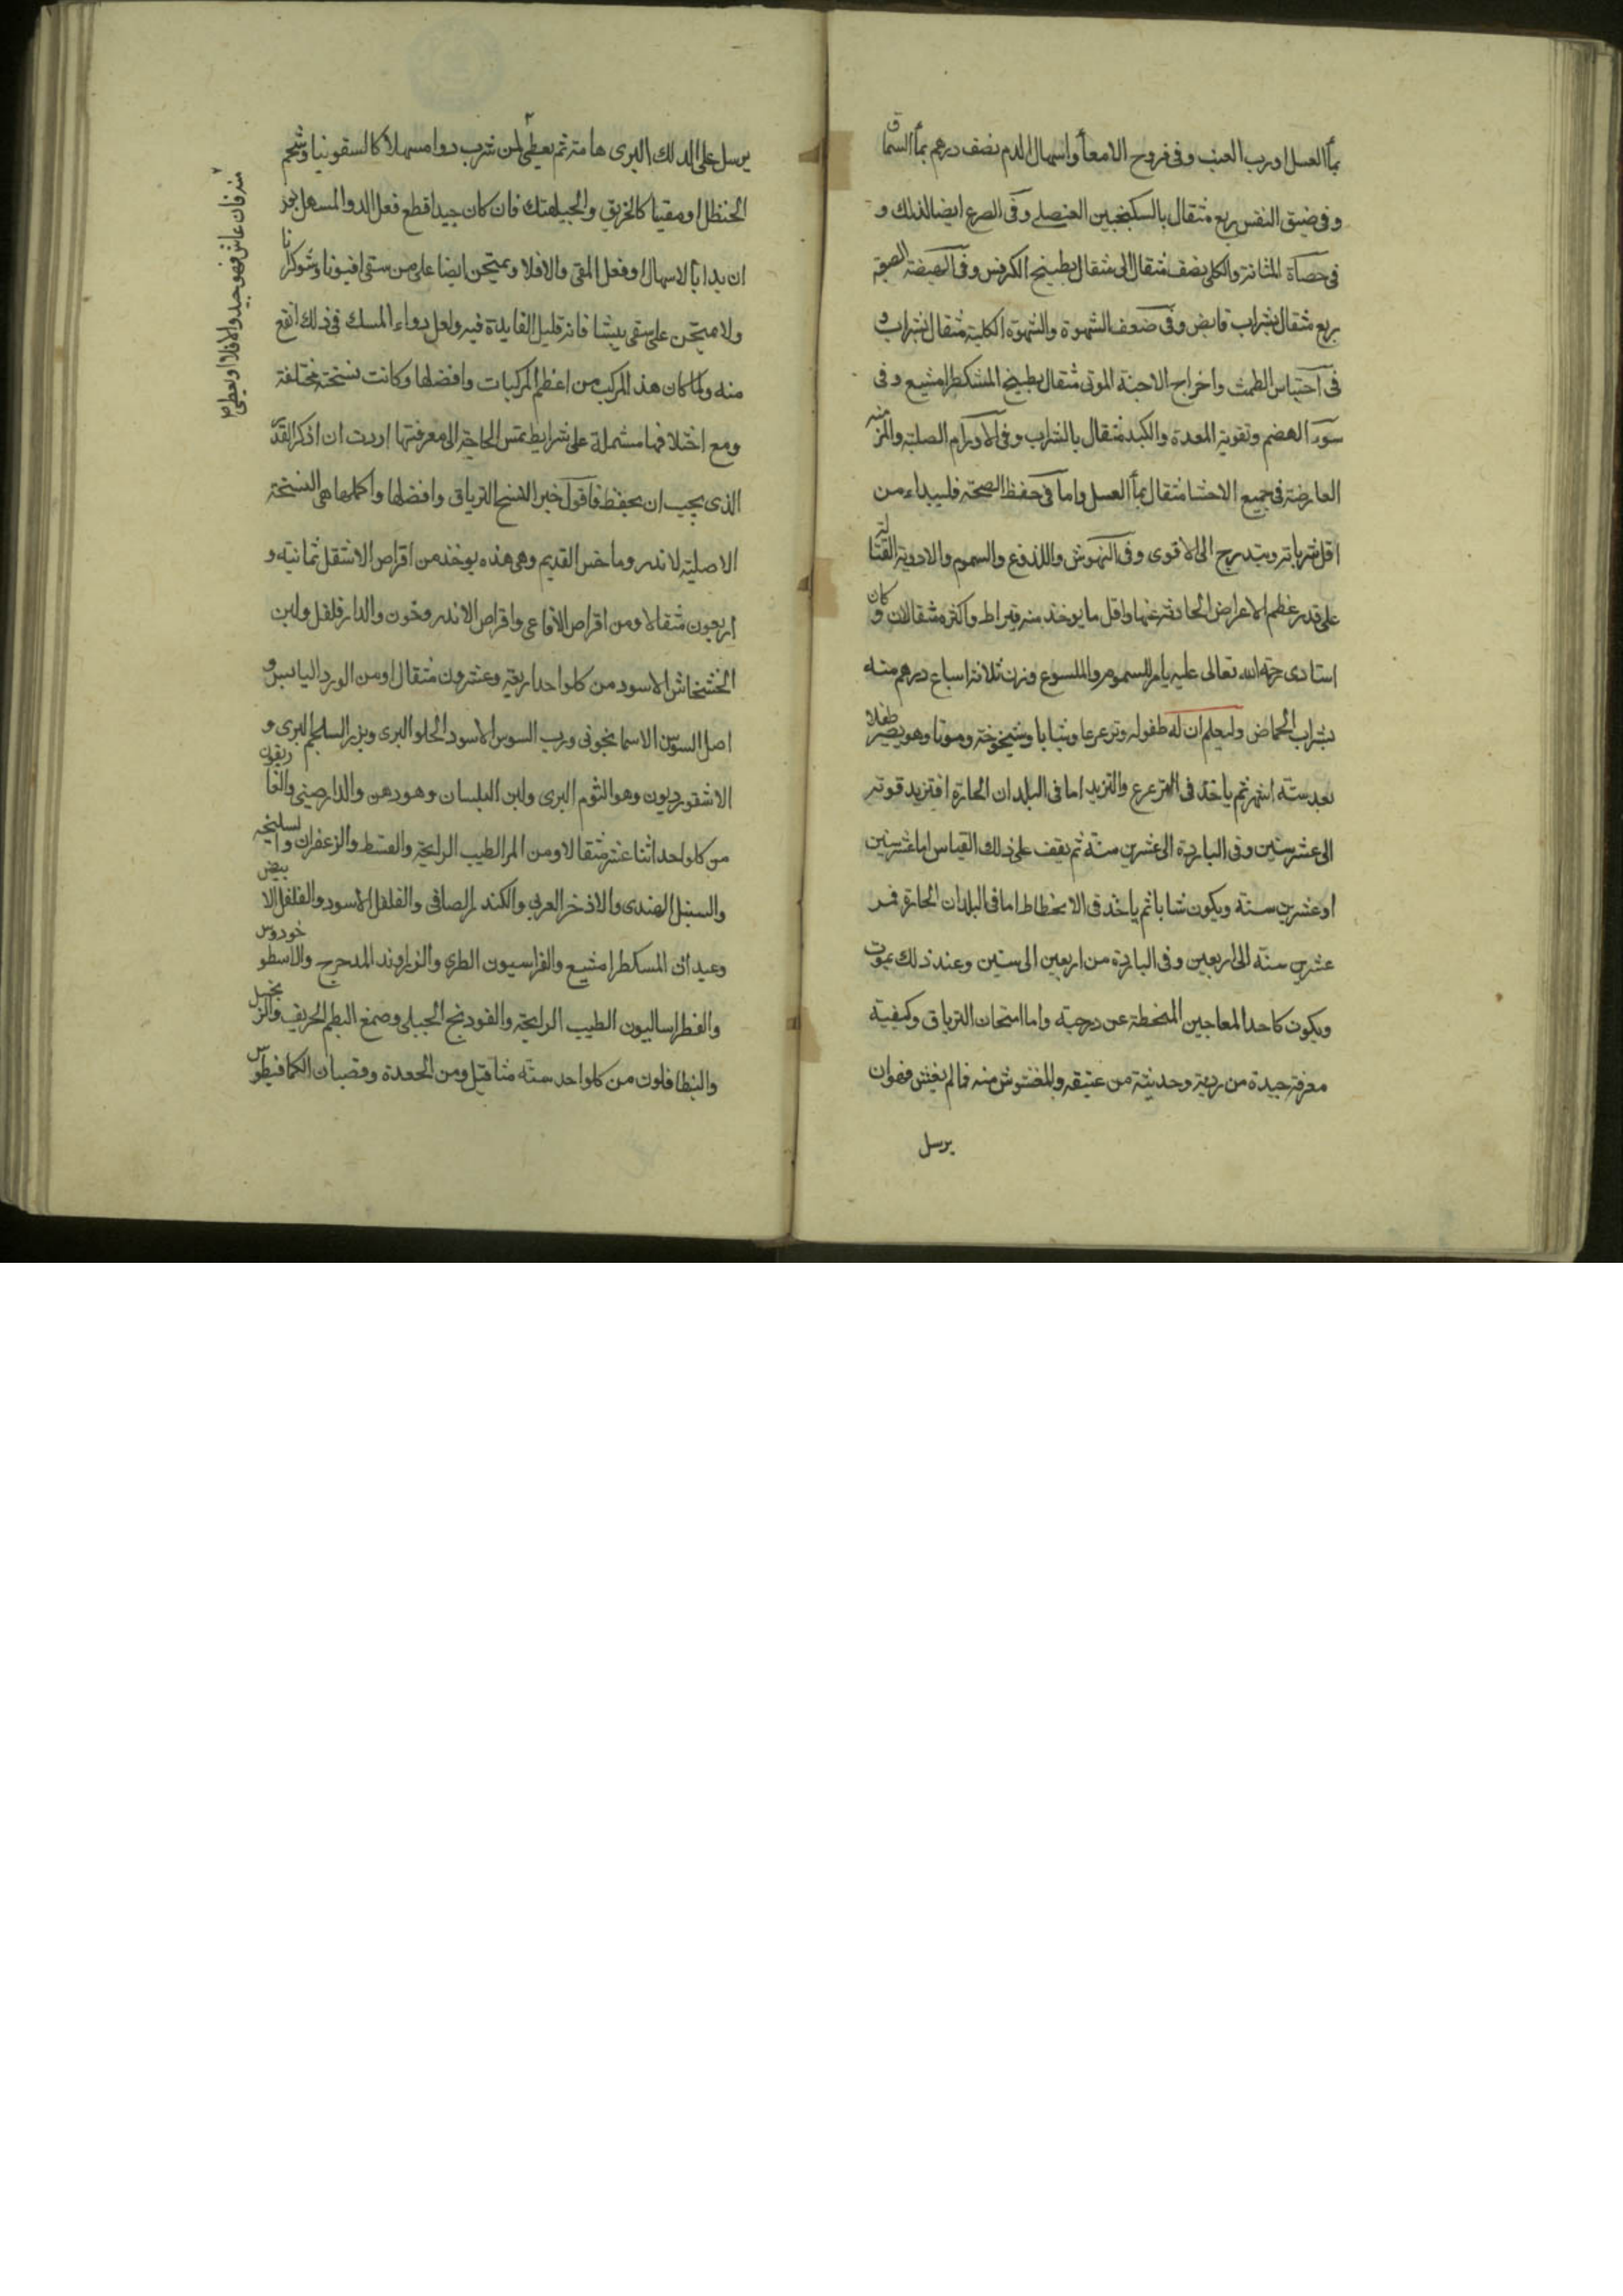 بمأ العسل او رب العنب وفى قروح الامعأ واسهال الدم نصف درهم بمأ السماق
وفى ضيق النفس ربع مثقال بالسكنجبين العنصلى وفى الصرع ايضا لذلك و
فى حصاة المثانة والكلى نصف مثقال الى مثقال بطبيخ الكرفس وفى الهيضة القوية
ربع مثقال بشراب قابض وفى ضعف الشهوة والشهوة الكلبية مثقال بشراب و
فى احتباس الطمث واخراج الاجنة الموتى مثقال بطبيخ المشكطرامشيع وفى
سوء الهضم وتقوية المعدة والكبد مثقال بالشراب وفى الاورام الصلبة والمزمنة
العارضة فى جميع الاحشا مثقال بمأ العسل واما فى حفظ الصحة فليبداء من
اقل شرباته ويتدرج الى الاقوى وفى النهوش واللذوع والسموم والادوية القتالة
على قدر عظم الاعراض الحادثة عنها واقل ما يوخذ منه قيراط واكثره مثقالان وكان
استادى رحمة الله تعالى عليه يامر للمسموم والملسوع وزن ثلاثة اسباع درهم منه
بشراب الحماض وليعلم ان له طفوله وترعرعا وشبابا وشيخوخة وموتا وهو يصير طفلا
بعد ستة اشهر ثم ياخذ فى الترعرع والتزيد اما فى البلدان الحارة فتزيد قوته
الى عشر سنين وفى الباردة الى عشرين سنة ثم يقف على ذلك القياس اما عشر سنين
او عشرين سنة ويكون شابا ثم ياخذ فى الانحطاط اما فى البلدان الحارة فمن
عشرين سنة الى اربعين وفى الباردة من اربعين الى ستين وعند ذلك يموت
ويكون كاحد المعاجين المنحطة عن درجته واما امتحان الترياق وكيفية
معرفة جيده من رديه وحديثه من عتيقه والمغشوش منه فما لم يغش فهو ان
يرسل
يرسل على الديك البرى هامة ثم يعطى لمن شرب دوا مسهلا كالسقمونيا وشحم
الحنظل او مقيا كالخربق والجبلهنك فان كان جيدا قطع فعل الدوا المسهل بعد
ان بدا بالاسهال او فعل المقى والا فلا ويمتحن ايضا على من سقى افيونا وشوكرانا
ولا يمتحن على سقى بيشا فانه قليل الفايدة فيه ولعل دواء المسك فى ذلك انفع
منه ولما كان هذا المركب من اعظم المركبات وافضلها وكانت نسخته مختلفة
ومع اختلافها مشتملة على شرايط تمس الحاجة الى معرفتها اردت ان اذكر القدر
الذى يجب ان يحفظ فاقول خير النسخ الترياق وافضلها واكملها هى النسخة
الاصلية لاندروماخس القديم وهى هذه يوخذ من اقراص الاشقيل ثمانية و
اربعون مثقالا ومن اقراص الافاعى واقراص الاندروخون والدار فلفل ولبن
الخشخاش الاسود من كل واحد اربعة وعشرون مثقالا ومن الورد اليابس و
اصل السوسن الاسمانجونى ورب السوس الاسود الحلو البرى وبزر السلجم البرى و
الاشقورديون وهو الثوم البرى ولبن البلسان وهو دهن والدارصينى والغاريقون
من كل واحد اثنا عشر مثقالا ومن المر الطيب الرايحة والقسط والزعفران والسليخه
والسنبل الهندى والاذخر العربى والكندر الصافى والفلفل الاسود والفلفل الابيض
وعيدان المسكطرامشيع والفراسيون الطرى والزراوند المدحرج والاسطوخودوس
والفطراساليون الطيب الرايحة والفودنج الجبلى وصمغ البطم الحريف والزنجبيل
والنطافلون من كل واحد ستة مثاقيل ومن الجعدة وقضبان الكمافيطوس
منه فان عاش فهو جيد والا فلا او يعطى